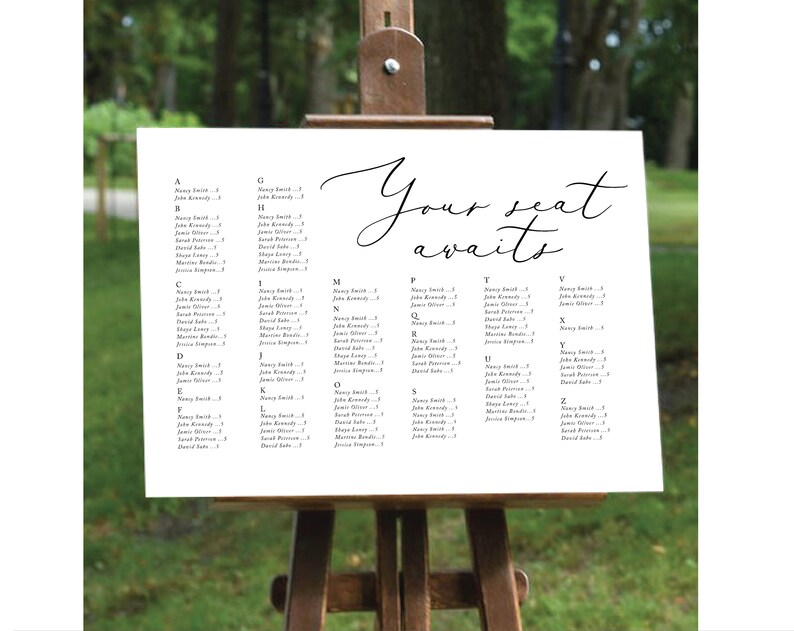 Your seat
awaits
A
Nancy Smith ...5
John Kennedy ...5
B
Nancy Smith ...5
John Kennedy ...5
Jamie Oliver ...5
Sarah Peterson ...5
David Sabo ...5
Shaya Loney ...5
Martine Bondie...5
Jessica Simpson...5
C
Nancy Smith ...5
John Kennedy ...5
Jamie Oliver ...5
Sarah Peterson ...5
David Sabo ...5
Shaya Loney ...5
Martine Bondie...5
Jessica Simpson...5
D
Nancy Smith ...5
John Kennedy ...5
Jamie Oliver ...5
E
Nancy Smith ...5
F
Nancy Smith ...5
John Kennedy ...5
Jamie Oliver ...5
Sarah Peterson ...5
David Sabo ...5
G
Nancy Smith ...5
John Kennedy ...5
H
Nancy Smith ...5
John Kennedy ...5
Jamie Oliver ...5
Sarah Peterson ...5
David Sabo ...5
Shaya Loney ...5
Martine Bondie...5
Jessica Simpson...5
I
Nancy Smith ...5
John Kennedy ...5
Jamie Oliver ...5
Sarah Peterson ...5
David Sabo ...5
Shaya Loney ...5
Martine Bondie...5
Jessica Simpson...5
J
Nancy Smith ...5
John Kennedy ...5
Jamie Oliver ...5
K
Nancy Smith ...5
L
Nancy Smith ...5
John Kennedy ...5
Jamie Oliver ...5
Sarah Peterson ...5
David Sabo ...5
M
Nancy Smith ...5
John Kennedy ...5
N
Nancy Smith ...5
John Kennedy ...5
Jamie Oliver ...5
Sarah Peterson ...5
David Sabo ...5
Shaya Loney ...5
Martine Bondie...5
Jessica Simpson...5
O
Nancy Smith ...5
John Kennedy ...5
Jamie Oliver ...5
Sarah Peterson ...5
David Sabo ...5
Shaya Loney ...5
Martine Bondie...5
Jessica Simpson...5
P
Nancy Smith ...5
John Kennedy ...5
Jamie Oliver ...5
Q
Nancy Smith ...5
R
Nancy Smith ...5
John Kennedy ...5
Jamie Oliver ...5
Sarah Peterson ...5
David Sabo ...5
S
Nancy Smith ...5
John Kennedy ...5
Nancy Smith ...5
John Kennedy ...5
Nancy Smith ...5
John Kennedy ...5
T
Nancy Smith ...5
John Kennedy ...5
Jamie Oliver ...5
Sarah Peterson ...5
David Sabo ...5
Shaya Loney ...5
Martine Bondie...5
Jessica Simpson...5
U
Nancy Smith ...5
John Kennedy ...5
Jamie Oliver ...5
Sarah Peterson ...5
David Sabo ...5
Shaya Loney ...5
Martine Bondie...5
Jessica Simpson...5
V
Nancy Smith ...5
John Kennedy ...5
Jamie Oliver ...5
X
Nancy Smith ...5
Y
Nancy Smith ...5
John Kennedy ...5
Jamie Oliver ...5
Sarah Peterson ...5
David Sabo ...5
Z
Nancy Smith ...5
John Kennedy ...5
Jamie Oliver ...5
Sarah Peterson ...5
David Sabo ...5